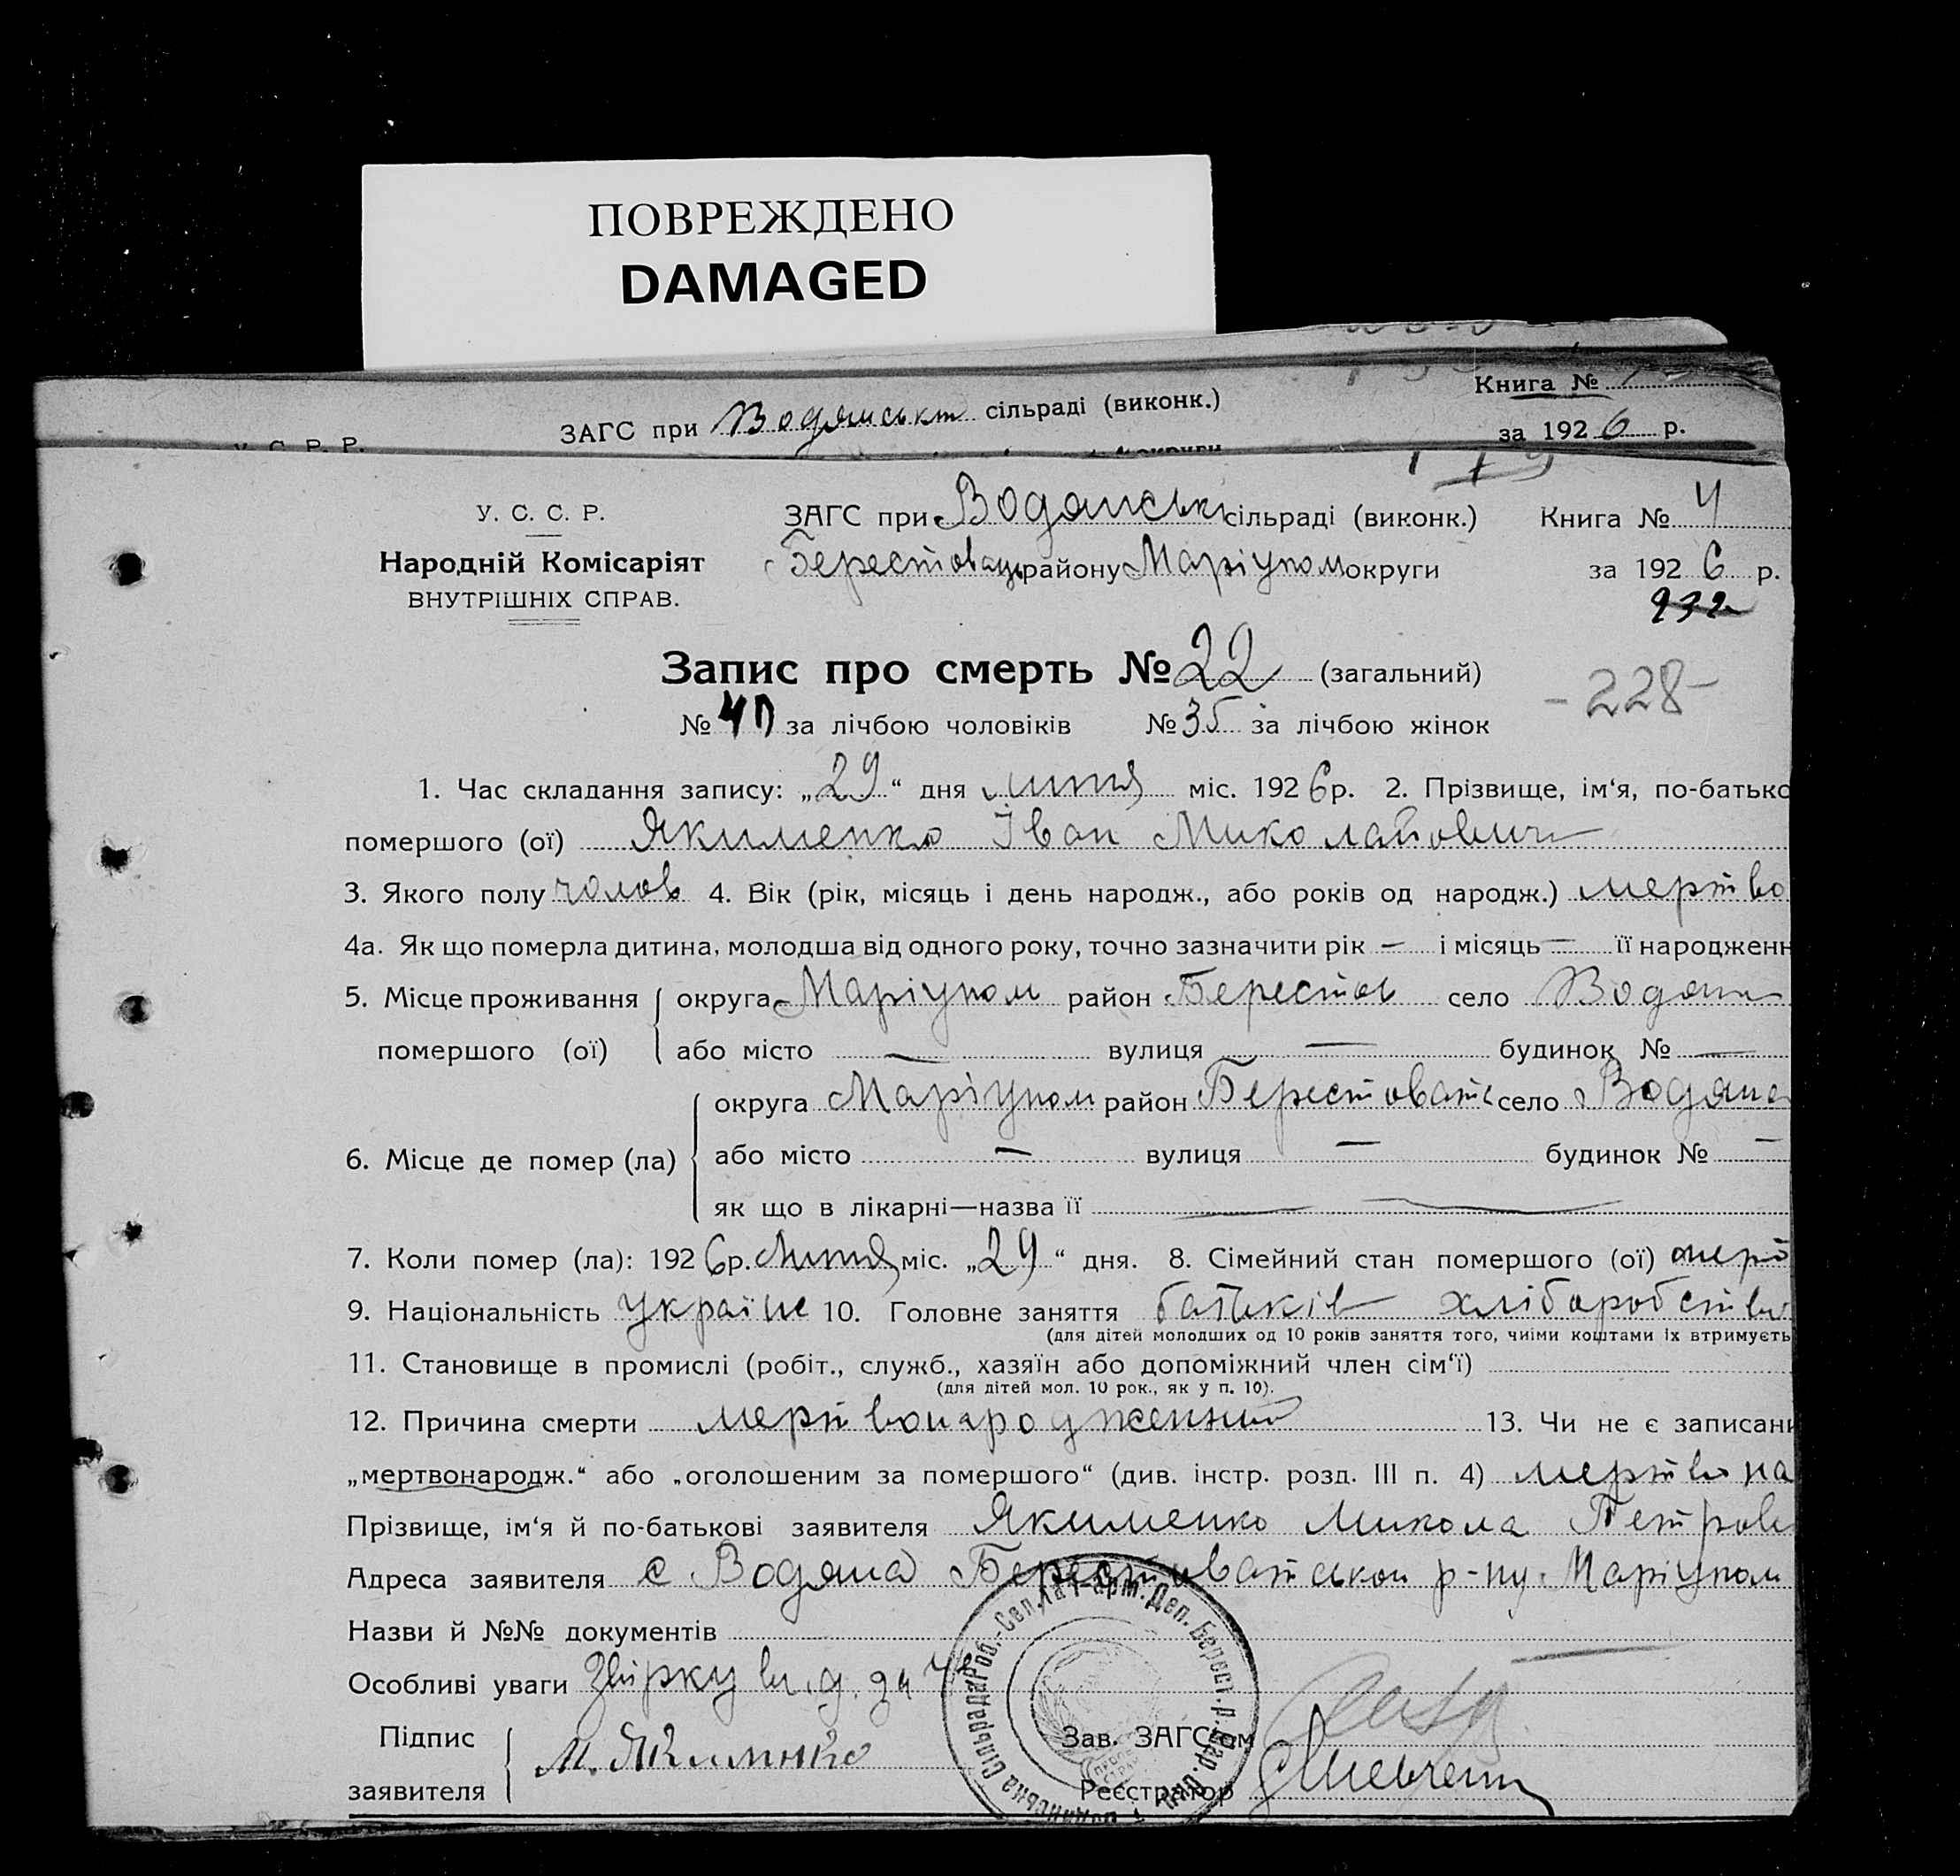 ПОВРЕЖДЕНО
DAMAGED
Книга №
ЗАГС при Водянськ сільраді (виконк.)
за 1926 р.
У. С. Р. Р.
У. С. С. Р. ЗАГС при Водянські сільраді (виконк.) Книга № 4
Народній Комісаріят Берестоваць району Маріупол округи за 1926 р.
ВНУТРІШНІХ СПРАВ.
232
Запис про смерть № 22 (загальний)
- 228 -
№ за лічбою чоловіків № 35 за лічбою жінок
1. Час складання запису: „29“ дня липня міс. 1926 р. 2. Прізвище, ім‘я, по-батько
помершого (ої) Якименко Іван Миколайович
3. Якого полу чолов 4. Вік (рік, місяць і день народж., або років од народж.) мертво
4а. Як що померла дитина, молодша від одного року, точно зазначити рік — і місяць — її народженн
5. Місце проживання округа Маріупол район Берестов село Водян
помершого (ої) або місто — вулиця — будинок № —
округа Маріупол район Берестоватс село Водяна
6. Місце де помер (ла) або місто — вулиця — будинок № —
як що в лікарні—назва її —
7. Коли помер (ла): 1926 р. липня міс. „29“ дня. 8. Сімейний стан помершого (ої) мерт
9. Національність україне 10. Головне заняття батьків хліборобство
(для дітей молодших од 10 років заняття того, чиїми коштами їх втримуєть
11. Становище в промислі (робіт., служб., хазяїн або допоміжний член сім‘ї)
(для дітей мол. 10 рок., як у п. 10).
12. Причина смерти мертвонароджений 13. Чи не є записани
„мертвонародж.“ або „оголошеним за помершого“ (див. інстр. розд. III п. 4) мертвона
Прізвище, ім‘я й по-батькові заявителя Якименко Микола Петров
Адреса заявителя с Водяна Берестоватськои р-ну Маріупол
Назви й №№ документів
Особливі уваги Звірку
Підпис Зав. ЗАГС‘ом
М. Якименко
заявителя Реєстратор